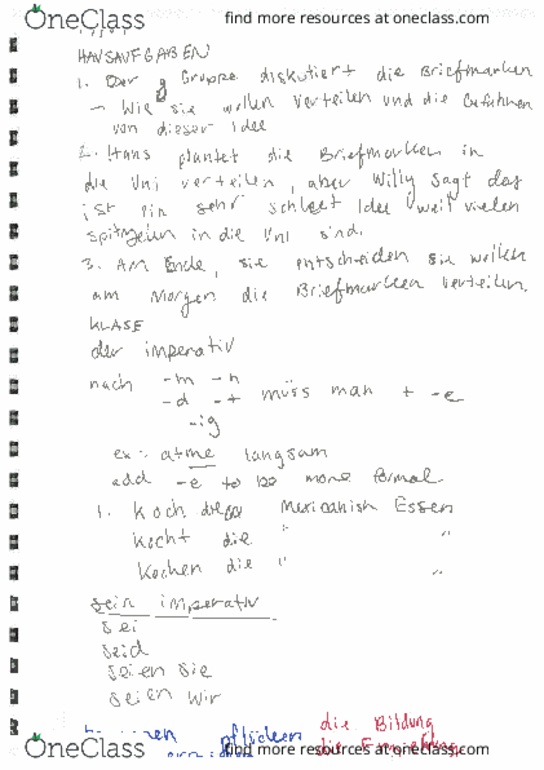 OneClass find more resources at oneclass.com
HAUSAUFGABEN
1. Der Gruppe diskutiert die Briefmarken
- Wie sie wollen verteilen und die Gefahren
von dieser Idee
2. Hans plantet die Briefmarken in
die Uni verteilen, aber Willy sagt das
ist ein sehr schleet Idee weil vielen
spitzeln in die Uni sind.
3. Am Ende, sie entscheiden sie wollen
am Morgen die Briefmarken verteilen.
KLASE
der imperativ
nach -m -n
-d -t müss man + -e
-ig
ex: atme langsam
add -e to be more formal
1. Koch die Mexicanish Essen
Kocht die " "
Kochen die " "
sein imperativ
sei
seid
seien sie
seien wir
pflücken die Bildung
OneClass find more resources at oneclass.com